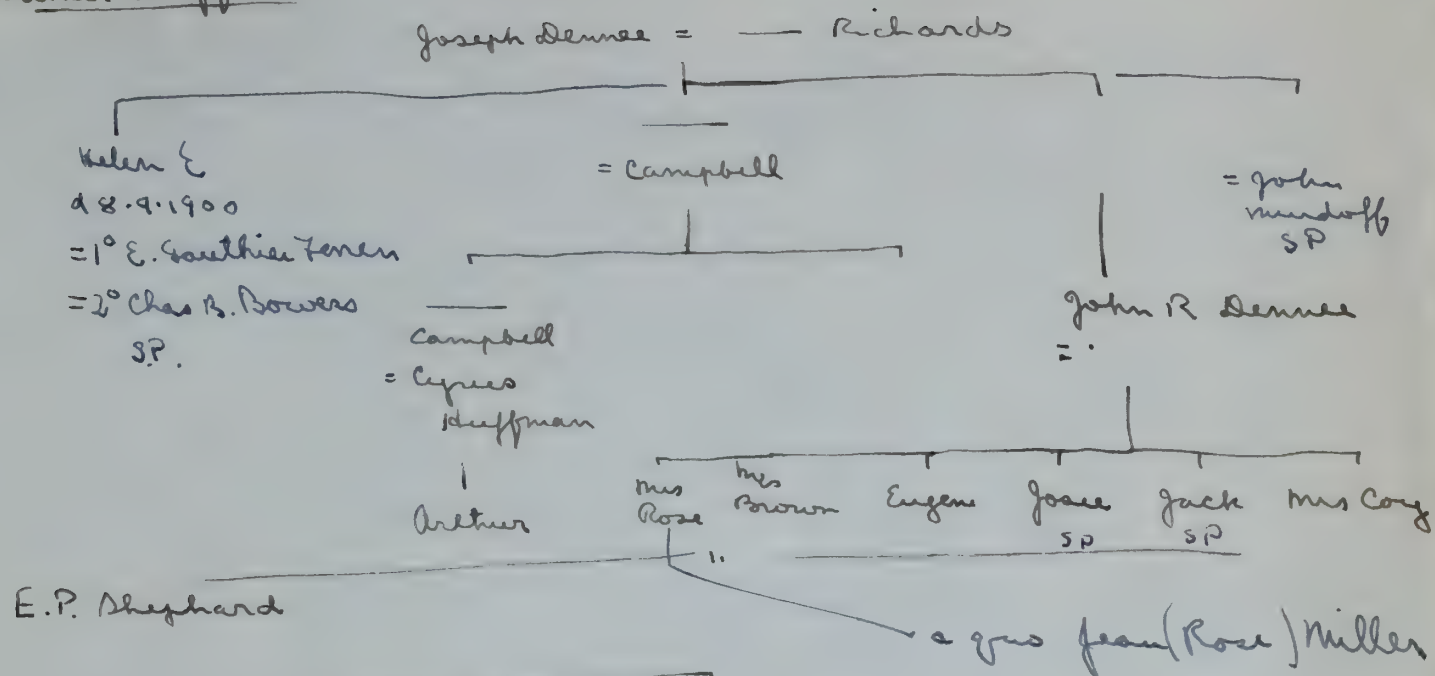 Joseph Dennee = — Richards
Helen E
d 8.9.1900
=1° E. Gauthier
=2° Chas B. Bowers
S.P.
= Campbell
= John
SP
Campbell
= Cyrus
Huffman
Arthur
John R Dennee
= .
Mrs
Rose
Mrs
Brown
Eugene
Josie
SP
Jack
SP
Mrs Cory
E.P. Shephard
a quo Jean (Rose) Miller